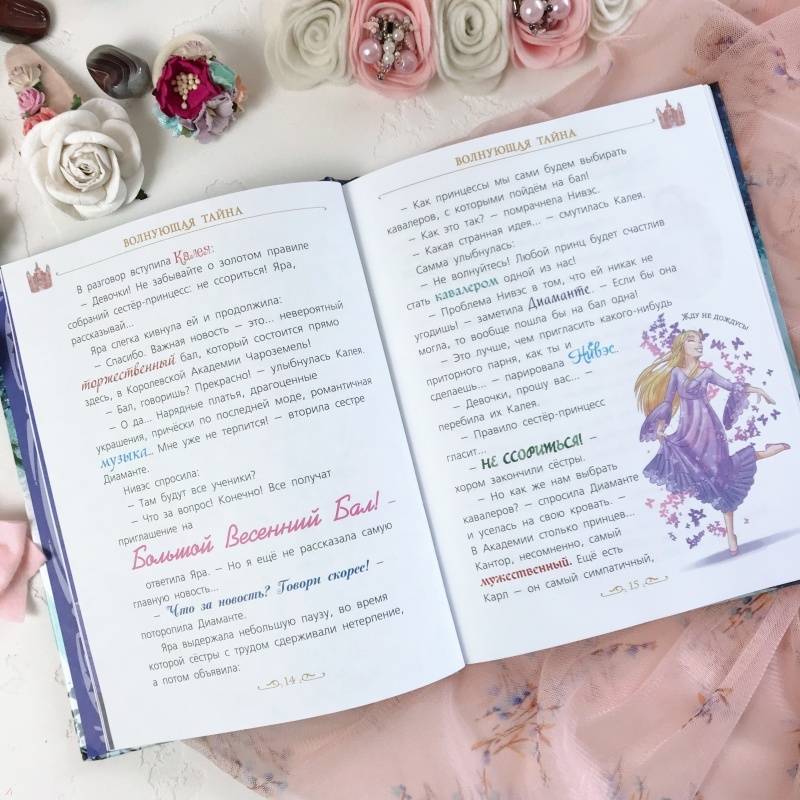 ВОЛНУЮЩАЯ ТАЙНА
В разговор вступила Калея:
– Девочки! Не забывайте о золотом правиле
собраний сестёр-принцесс: не ссориться! Яра,
рассказывай...
Яра слегка кивнула ей и продолжила:
– Спасибо. Важная новость – это... невероятный
торжественный бал, который состоится прямо
здесь, в Королевской Академии Чароземель!
– Бал, говоришь? Прекрасно! – улыбнулась Калея.
– О да... Нарядные платья, драгоценные
украшения, причёски по последней моде, романтичная
музыка.. Мне уже не терпится! – вторила сестре
Диаманте.
Нивэс спросила:
– Там будут все ученики?
– Что за вопрос! Конечно! Все получат
приглашение на
Большой Весенний Бал! –
ответила Яра. – Но я ещё не рассказала самую
главную новость...
– Что за новость? Говори скорее! –
поторопила Диаманте.
Яра выдержала небольшую паузу, во время
которой сёстры с трудом сдерживали нетерпение,
а потом объявила:
14
ВОЛНУЮЩАЯ ТАЙНА
– Как принцессы мы сами будем выбирать
кавалеров, с которыми пойдём на бал!
– Как это так? – помрачнела Нивэс.
– Какая странная идея... – смутилась Калея.
Самма улыбнулась:
– Не волнуйтесь! Любой принц будет счастлив
стать кавалером одной из нас!
– Проблема Нивэс в том, что ей никак не
угодишь! – заметила Диаманте. – Если бы она
могла, то вообще пошла бы на бал одна!
– Это лучше, чем пригласить какого-нибудь
приторного парня, как ты и
сделаешь... – парировала Нивэс.
– Девочки, прошу вас... –
перебила их Калея.
– Правило сестёр-принцесс
гласит...
– НЕ ССОРИТЬСЯ! –
хором закончили сёстры.
– Но как же нам выбрать
кавалеров? – спросила Диаманте
и уселась на свою кровать. –
В Академии столько принцев...
Кантор, несомненно, самый
мужественный. Ещё есть
Карл – он самый симпатичный,
Жду не дождусь!
15